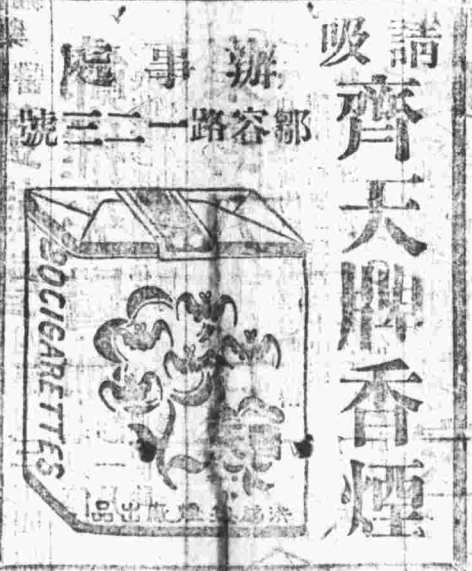 請吸
齊天牌香煙
辦事處
鄒容路一二三號
CIGARETTES
廠出品